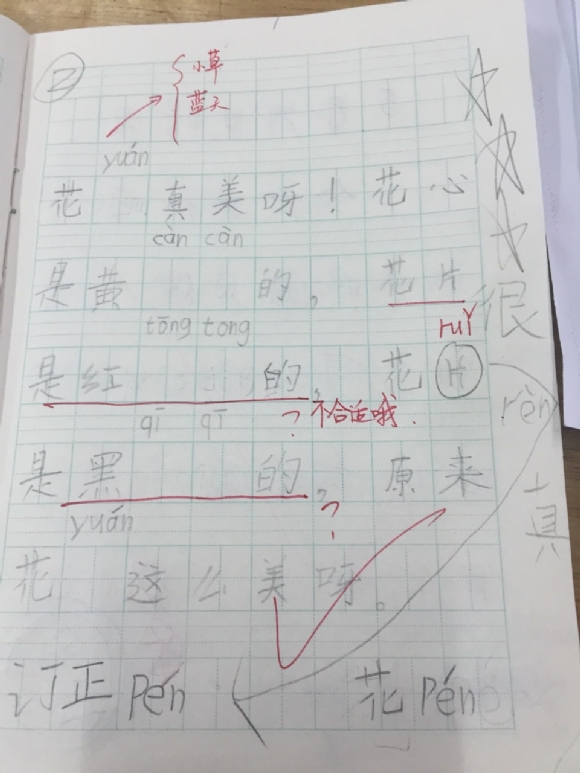 2
小草
蓝天
yuán
花 真美呀！花心
càn càn
是黄 的。花片
tōng tong
ruǐ
是红 的,花
qī qī
? 不合适哦.
很
rèn
真
是黑 的。原来
yuán
?
花 这么美呀。
订正 pén 花 pén